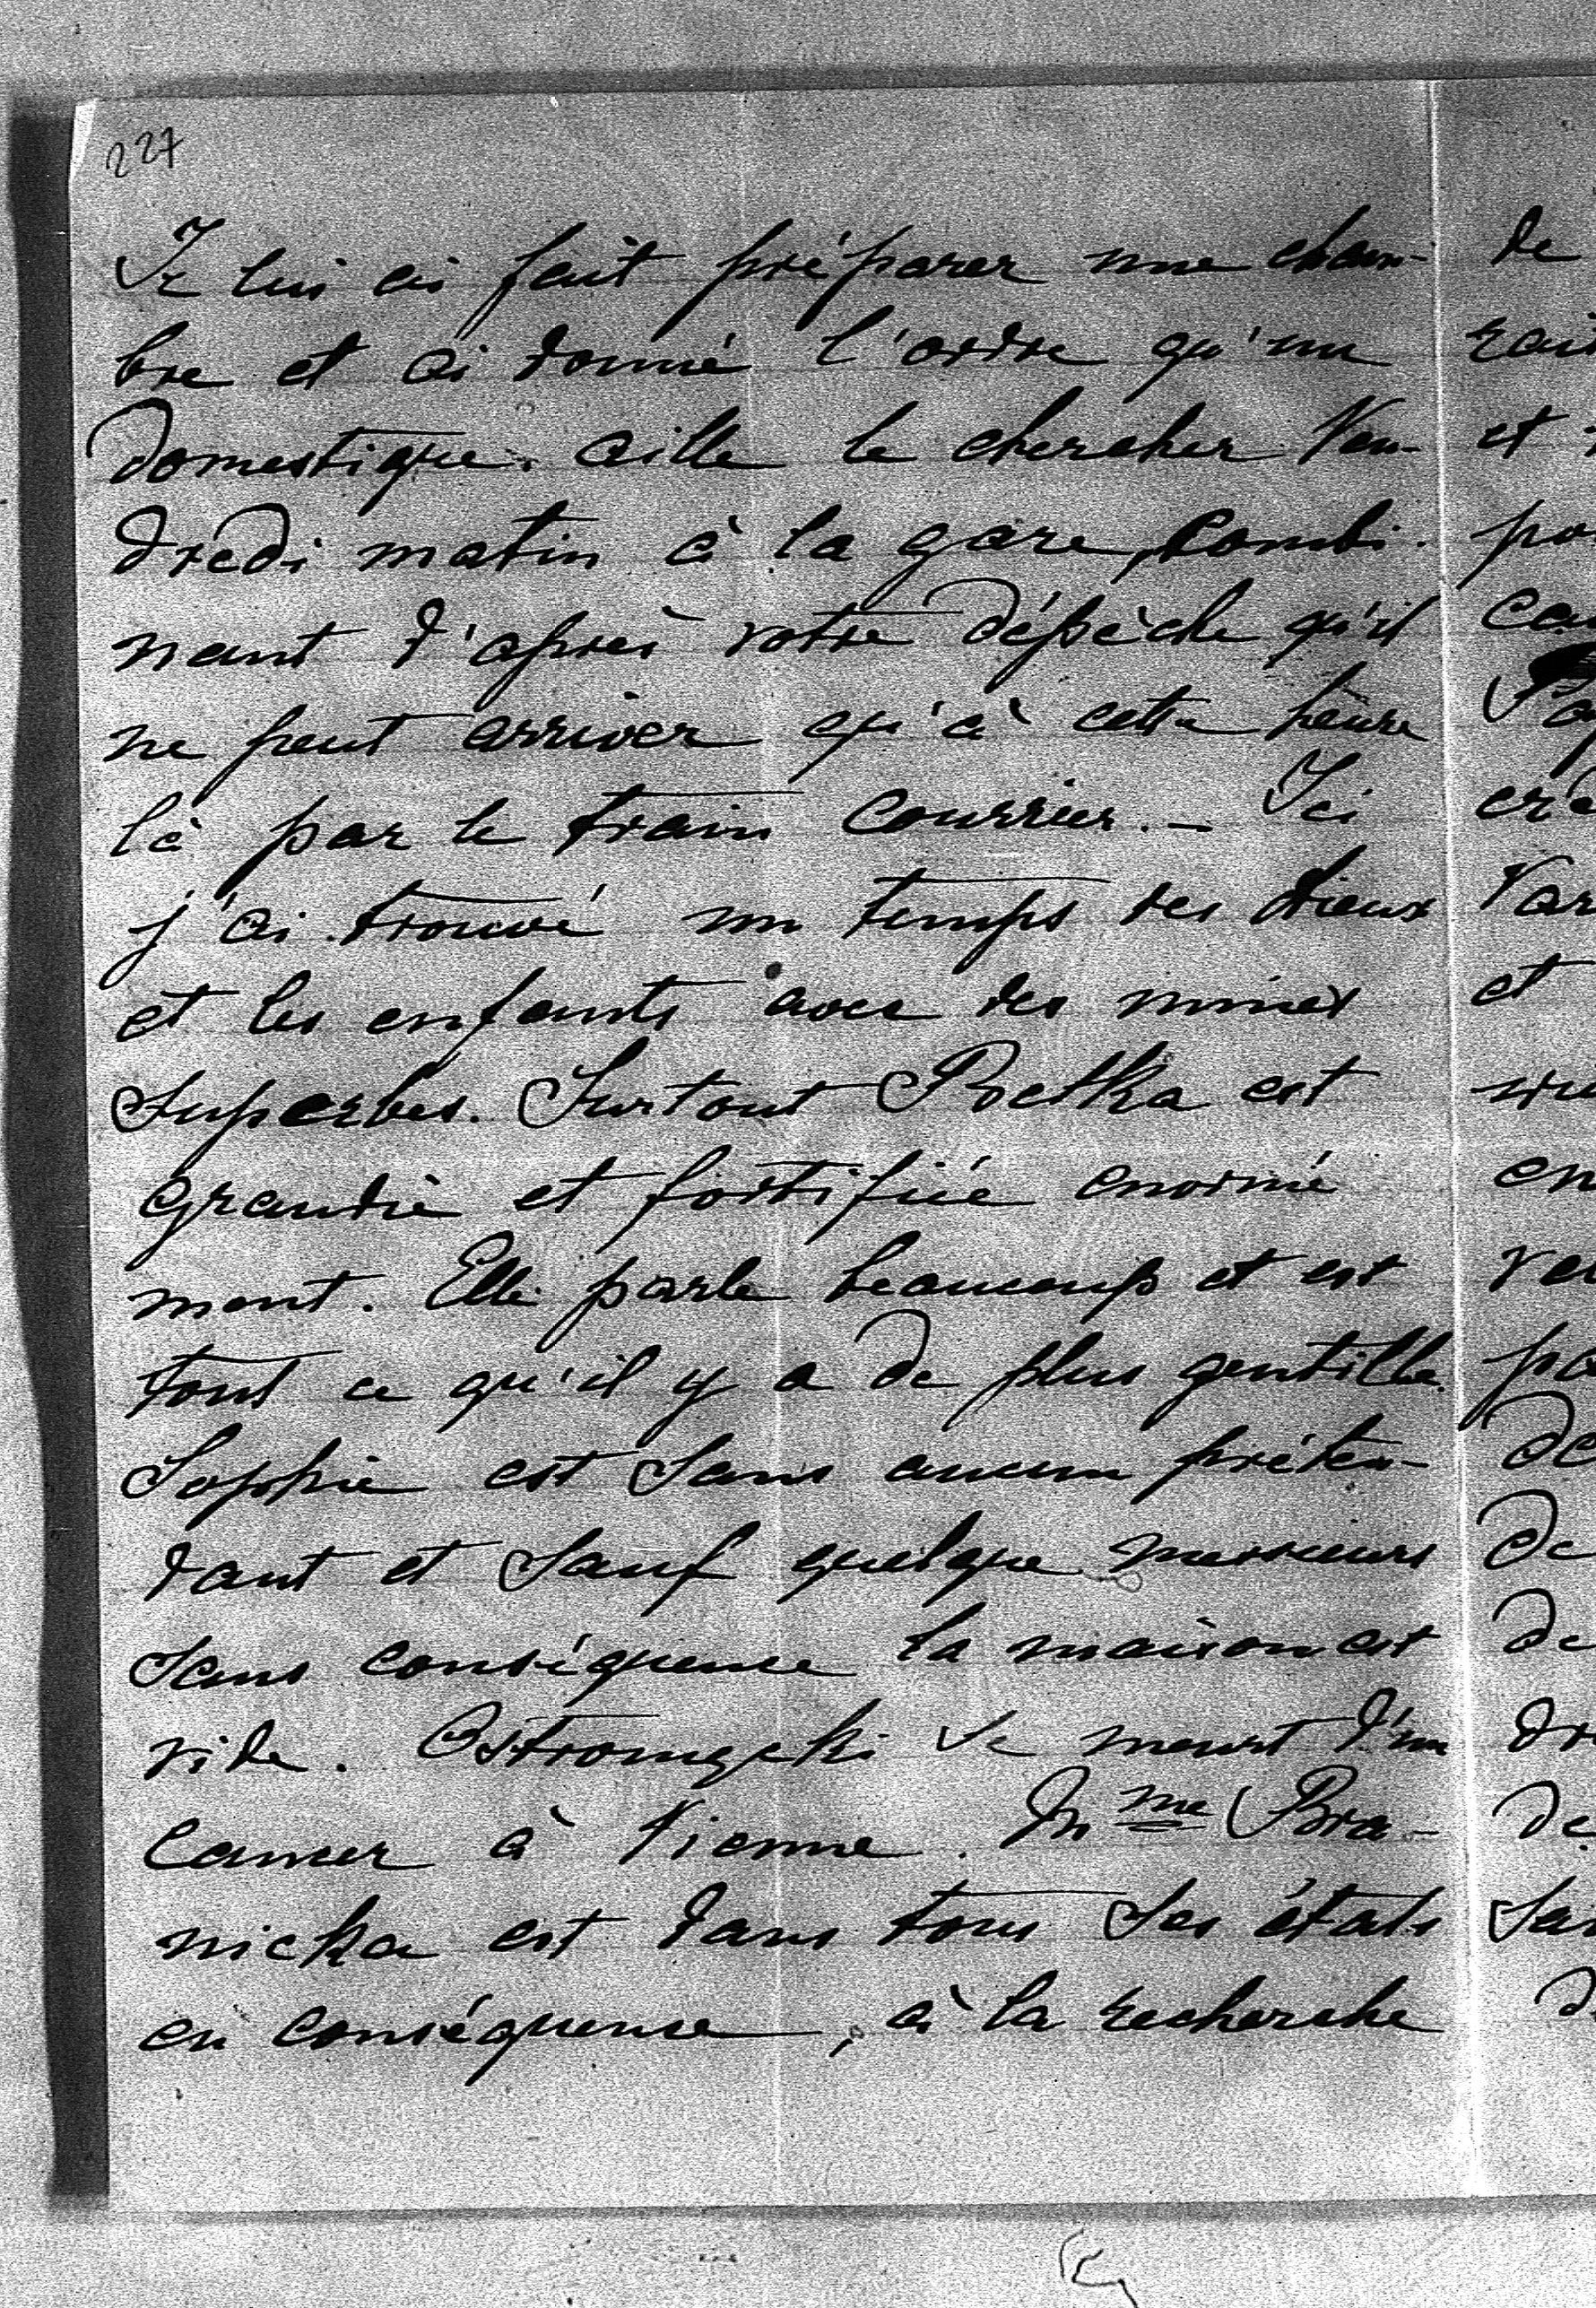 227
Je lui ai fait préparer une cham-
bre et ai donné l'ordre qu'un
domestique aille le chercher Ven-
dredi matin à la gare, combi-
nant d'après votre dépèche qu'il
ne peut arriver qu'à cette heure
là par le train courrier. - Ici
j'ai trouvé un temps des dieux
et les enfants avec des mines
superbes. Surtout Betka est
grandie et fortifiée enormé
ment. Elle parle beaucoup et est
tout ce qu'il y a de plus gentille.
Sophie est sans aucun préten-
dant et sauf quelque messieurs
sans conséquence la maison est
vide. se meurt d'un
cancer à Vienne. Mme Bra-
nicka est dans tous ses états
en conséquence, à la recherche
de
et
et
de
de